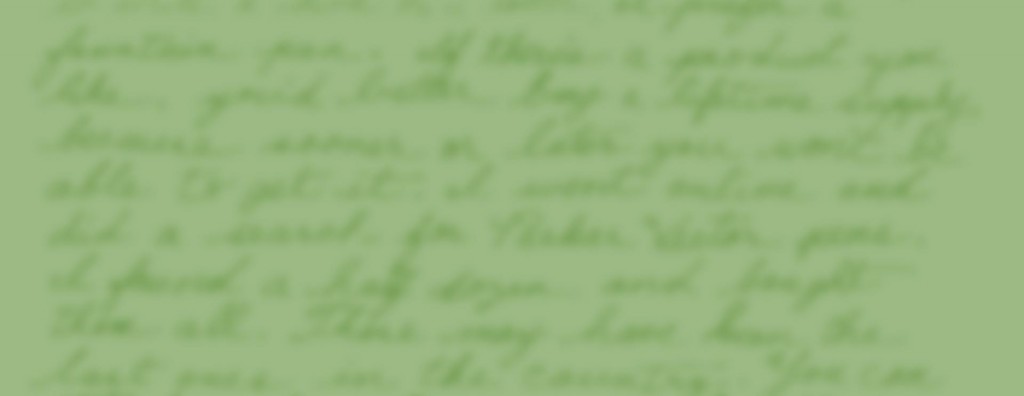 fountain pen. If there's a product you
like, you'd better buy a lifetime supply,
because sooner or later you won't be
able to get it. I went online and
did a search for Parker Vector pens.
I found a half dozen and bought
them all. These may have been the
last ones in the country. You can